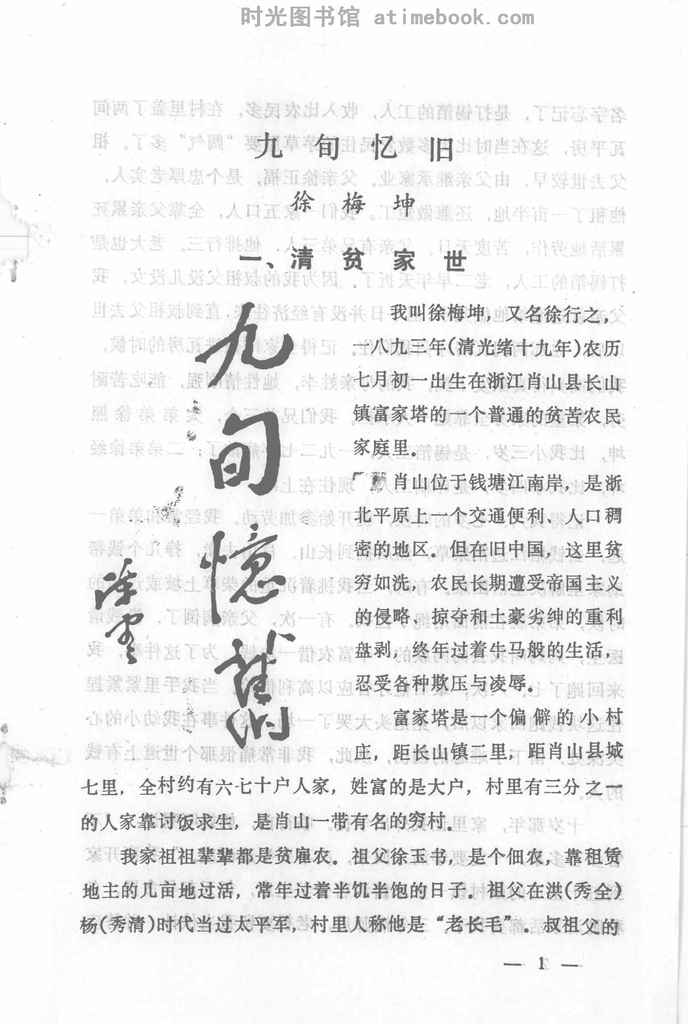 时光图书馆 atimebook.com
九旬忆旧
徐梅坤
一、清贫家世
九旬憶舊
陈云
我叫徐梅坤，又名徐行之，
一八九三年(清光绪十九年)农历
七月初一出生在浙江肖山县长山
镇富家塔的一个普通的贫苦农民
家庭里。
肖山位于钱塘江南岸，是浙
北平原上一个交通便利、人口稠
密的地区。但在旧中国，这里贫
穷如洗，农民长期遭受帝国主义
的侵略、掠夺和土豪劣绅的重利
盘剥，终年过着牛马般的生活，
忍受各种欺压与凌辱。
富家塔是一个偏僻的小村
庄，距长山镇二里，距肖山县城
七里，全村约有六七十户人家，姓富的是大户，村里有三分之一
的人家靠讨饭求生，是肖山一带有名的穷村。
我家祖祖辈辈都是贫雇农。祖父徐玉书，是个佃农，靠租赁
地主的几亩地过活，常年过着半饥半饱的日子。祖父在洪(秀全)
杨(秀清)时代当过太平军，村里人称他是“老长毛”。叔祖父的
— 1 —